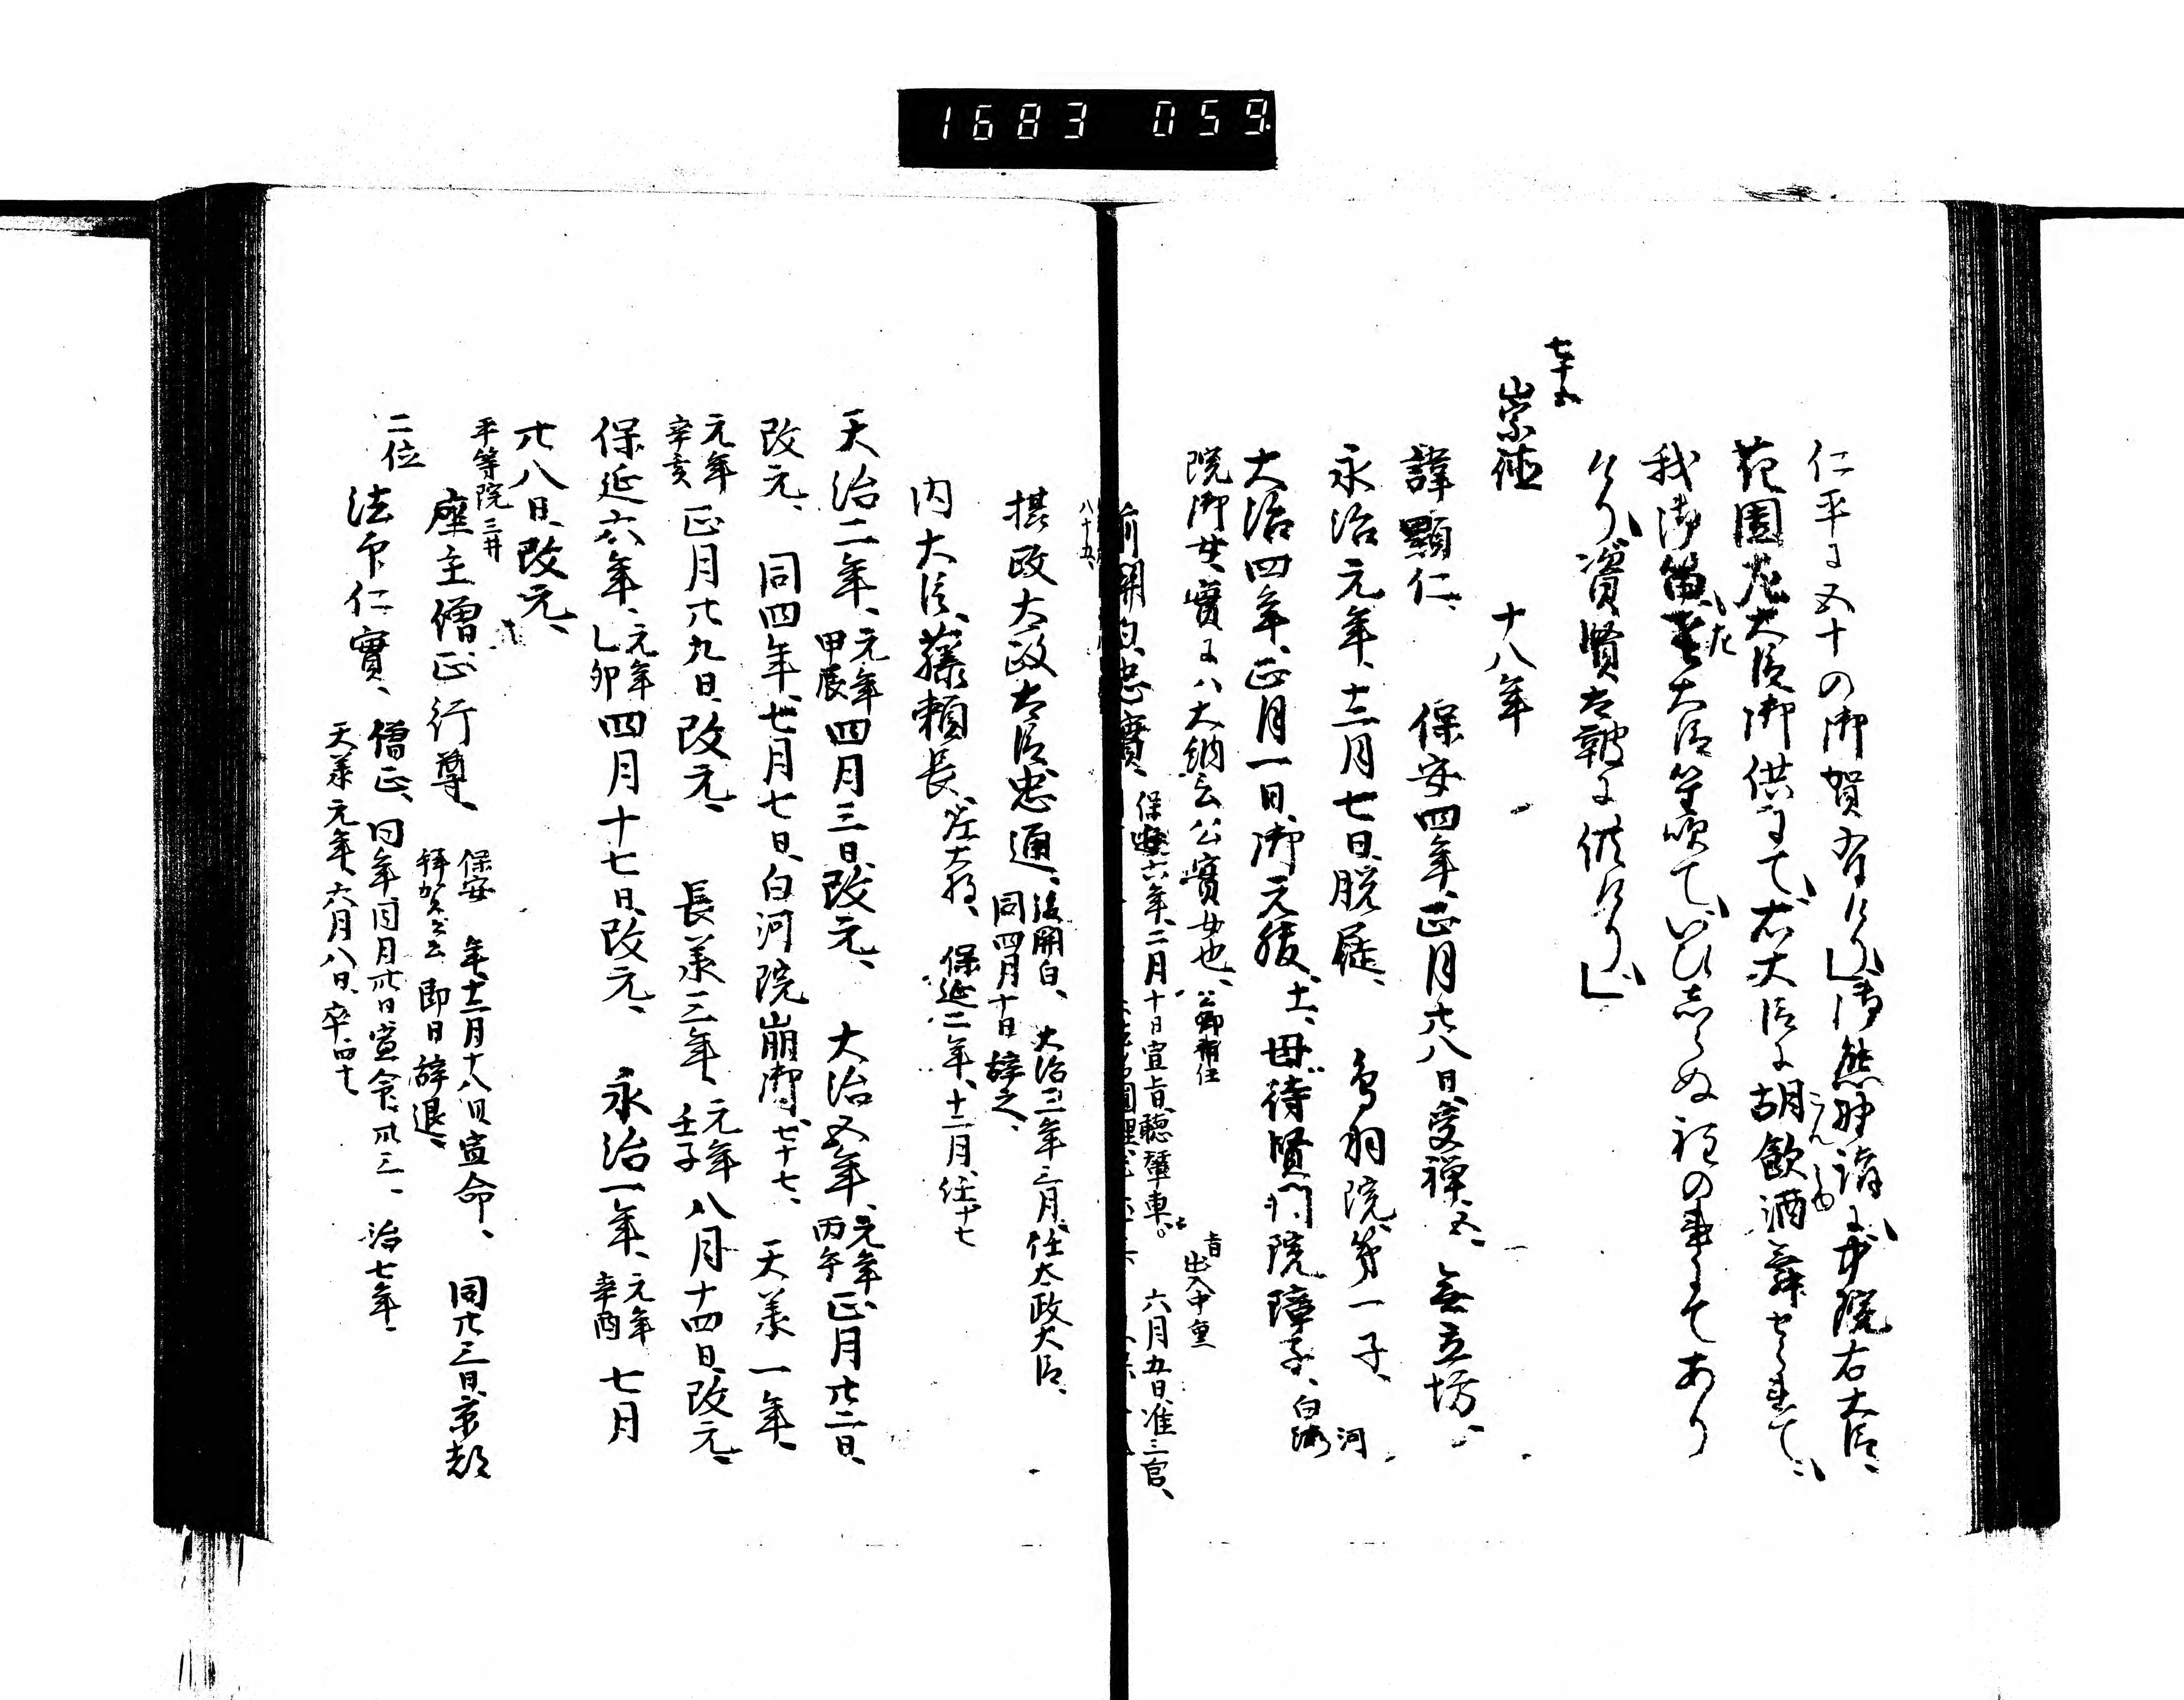 1683 059.
仁平ニ五十の御賀有けり御熊野詣に中院右大臣
花園左大臣御供にて右大臣に胡飲酒舞せられて
こんしゆ
我御笛左大臣笙吹ていひしらぬ程の事にてあり
けり資賢も鞁に供けり
七十五
崇徳 十八年
諱顯仁、保安四年、正月廿八日、受禪、五、無立坊、
永治元年、十二月七日、脱屣、鳥羽院、第一子、
大治四年、正月一日、御元服、十一、母待賢門院璋子、白河
院御女、實ニハ大納言公實女也、公卿補任
前關白、忠實、保安六年、二月十日宣旨、聽輦車。六月五日、准三宮、
旨出入中重
八十五
攝政太政大臣忠通、後關白、大治三年三月、任太政大臣、
同四月十日辞之、
内大臣、藤頼長、左大将、保延二年、十二月、任、十七
天治二年、元年甲辰四月三日、改元、大治五年、元年丙午正月廿二日、
改元、同四年、七月七日、白河院崩御、七十七、天承一年、
元年辛亥正月廿九日、改元、長承三年、元年壬子八月十四日、改元、
保延六年、元年乙卯四月十七日、改元、永治一年、元年辛酉七月
廿八日、改元、
平等院三井
座主僧正行尊、保安 年、十二月十八日宣命、同廿三日、京都
拜加 云云即日辞退、
二位
法印仁實、僧正、同年同月卅日宣命、卅三、治七年、
天承元年、六月八日、卒、四十